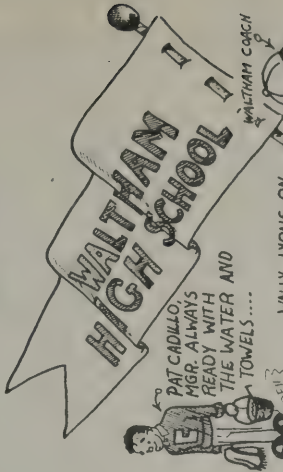 WALTHAM
HIGH SCHOOL
WALTHAM COACH
PAT CADILLO,
MGR. ALWAYS
READY WITH
THE WATER AND
TOWELS....
E
LYONS ON